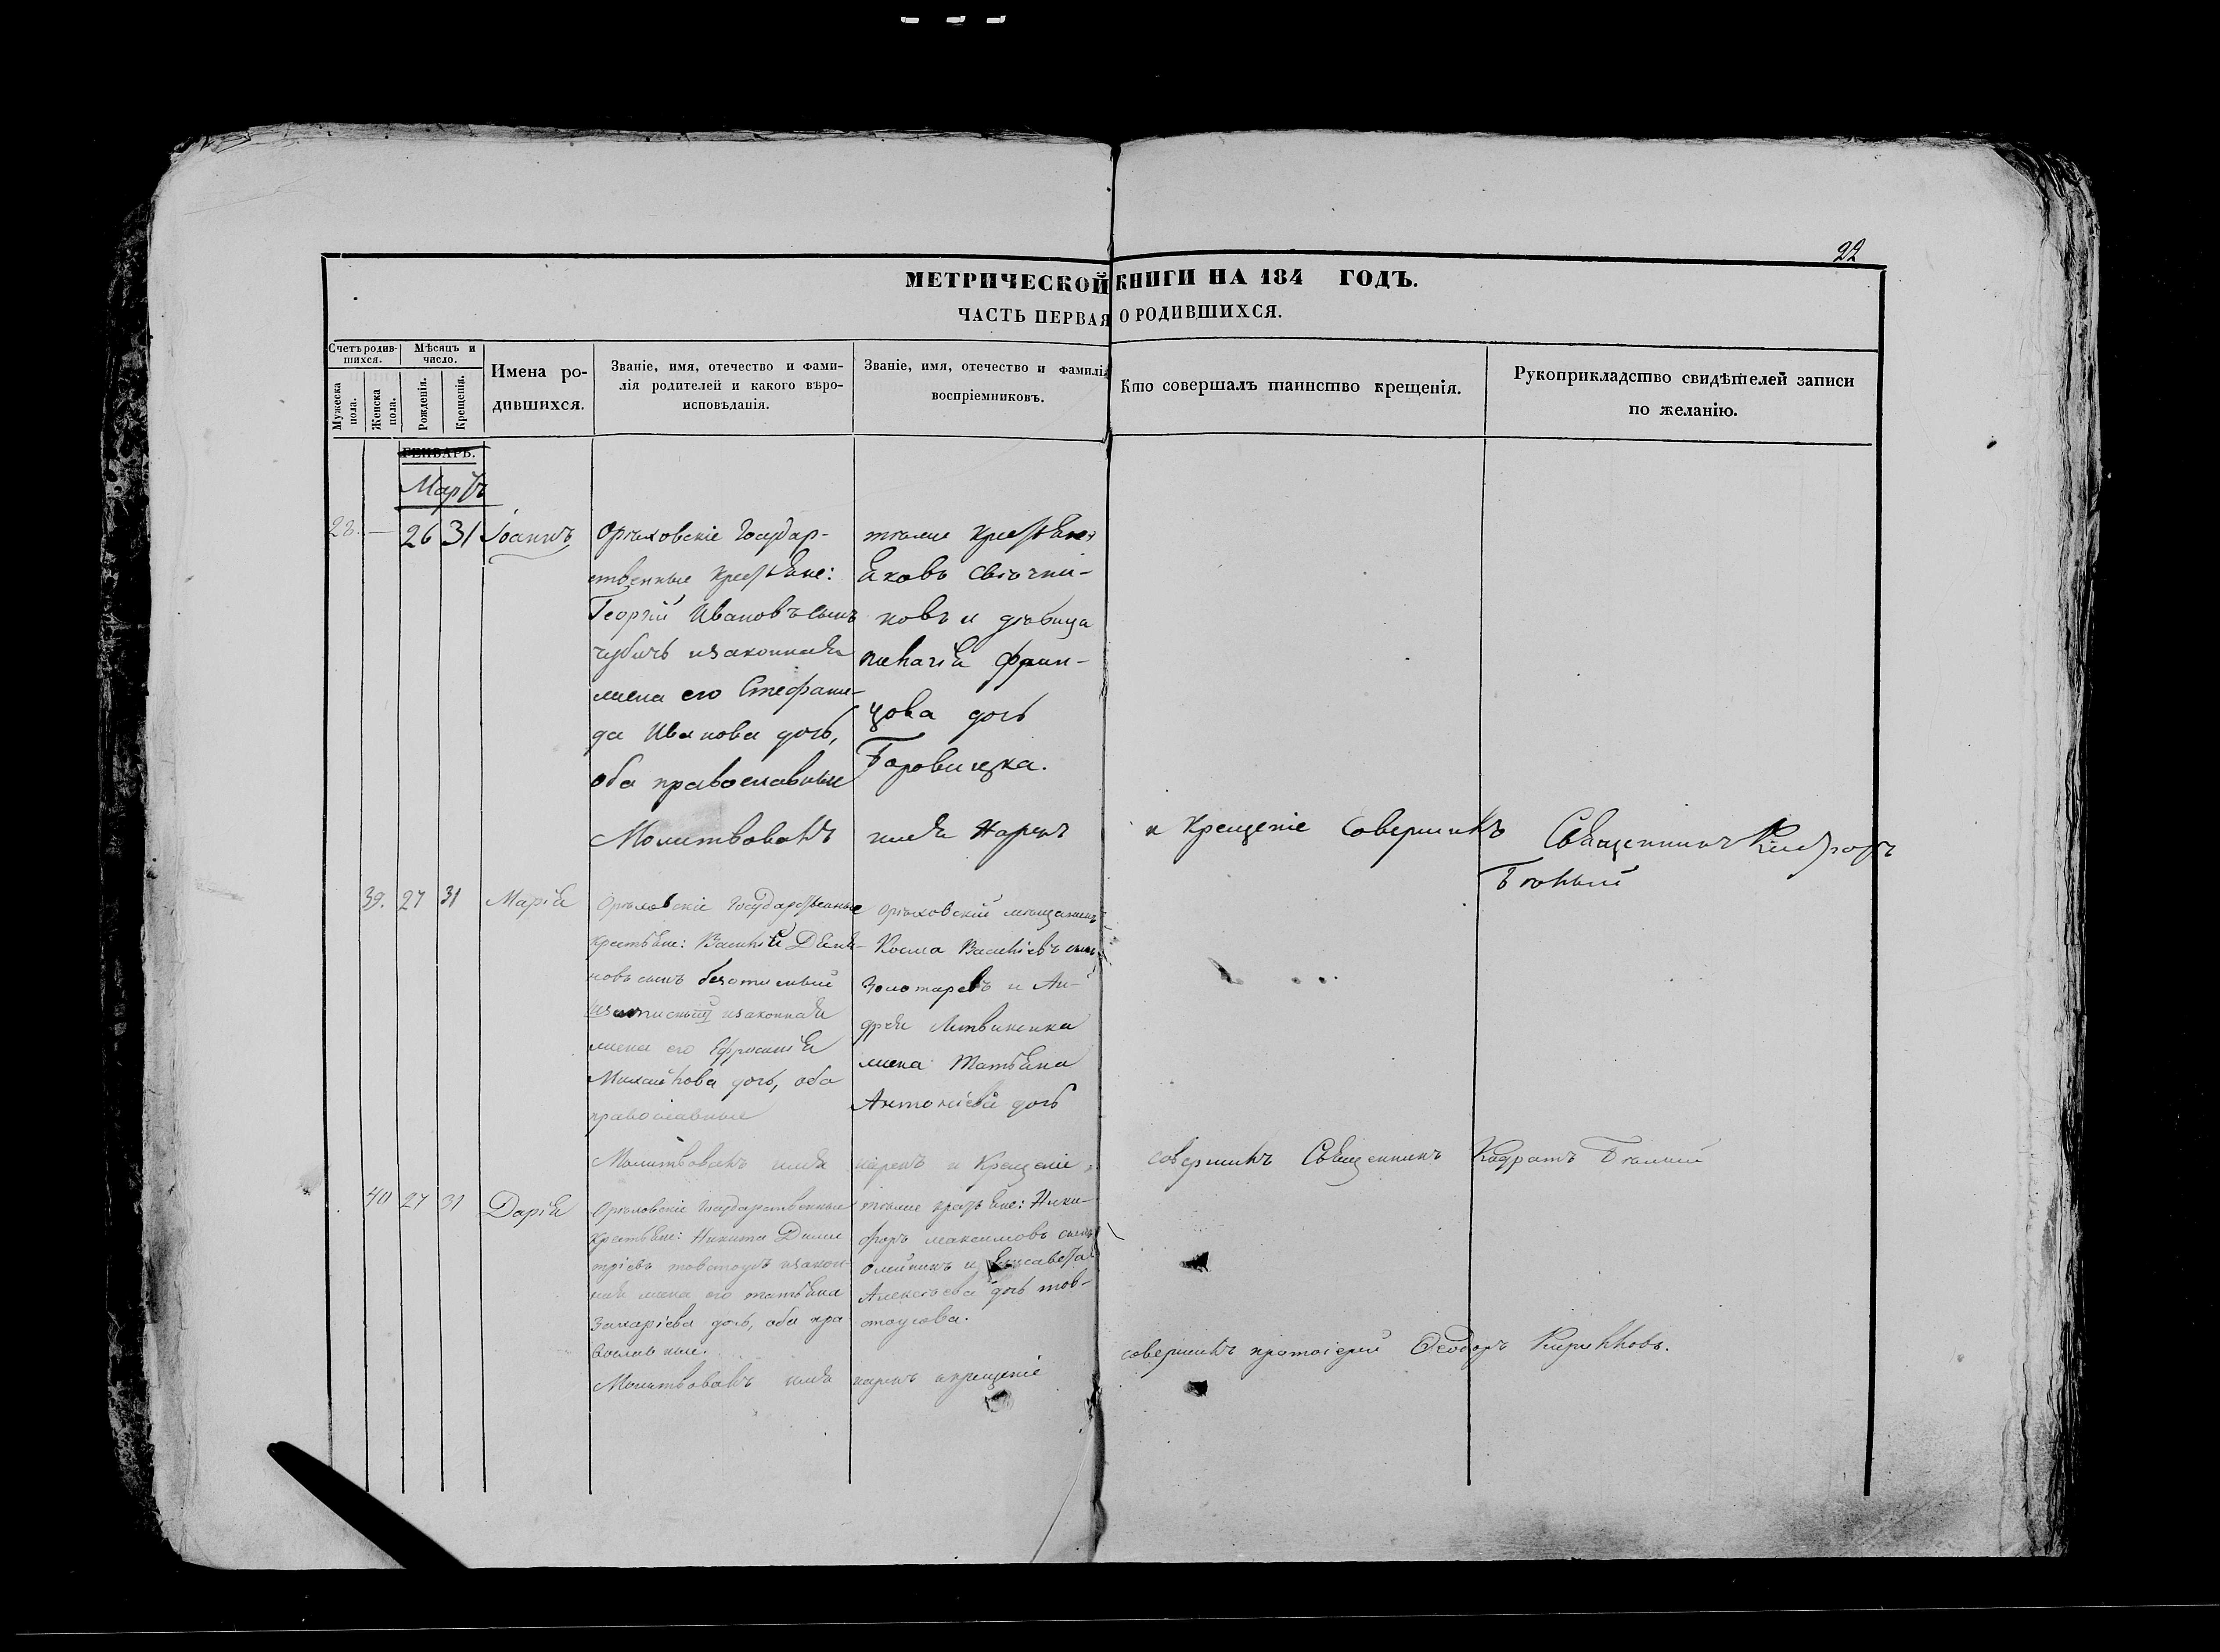 22
МЕТРИЧЕСКОЙ КНИГИ НА 184 ГОДЪ.
ЧАСТЬ ПЕРВАЯ О РОДИВШИХСЯ.
Счетъ родив-
шихся.
Мужеска
пола.
Женска
пола.
Мѣсяцъ и
число.
Рожденія.
Крещенія.
Имена ро-
дившихся.
Званіе, имя, отечество и фами-
лія родителей и какого вѣро-
исповѣданія.
Званіе, имя, отечество и фамилія
воспріемниковъ.
Кто совершалъ таинство крещенія.
Рукоприкладство свидѣтелей записи
по желанію.
ГЕНВАРЬ.
Мартъ
28. — 26 31 Іоаннъ
Орѣховскіе Государ-
ственные крестьяне:
Георгій Ивановъ сынъ
чубичъ изаконная
жена его Стефани-
да Иванова дочь,
оба православные
тѣже крестьяне
Яковъ Свѣчни-
ковъ и дѣвица
Пелагія Фран-
цова дочь
Боровицка.
Молитвовалъ имя Нарекъ и Крещеніе Совершилъ Священникъ
Бѣлый
39. 27 31 Марія
Орѣховскіе Государственные
крестьяне: Василій Демья-
новъ сынъ
изаконная
жена его Ефросинія
Михайлова дочь, оба
православные
Орѣховскій мѣщанинъ
Косма Василіевъ сынъ
Золотаревъ и Ан-
дрея Литвиненка
жена Татьяна
Антоніева дочь
Молитвовалъ имя нарекъ и Крещеніе совершилъ Священникъ Кодратъ Бѣлый
40 27 31 Дарія
Орѣховскіе Государственные
крестьяне: Никита Дими
тріевъ товстоусъ изакон-
ная жена его татьяна
Захаріева дочь, оба пра
вославные.
тѣже крестьяне: Ники-
форъ Максимовъ сынъ
Олейникъ и Елисавета
Алексѣева дочь тов-
стоусова.
Молитвовалъ имя нарекъ икрещеніе совершилъ протоіерей Ѳеодоръ Кирилловъ.